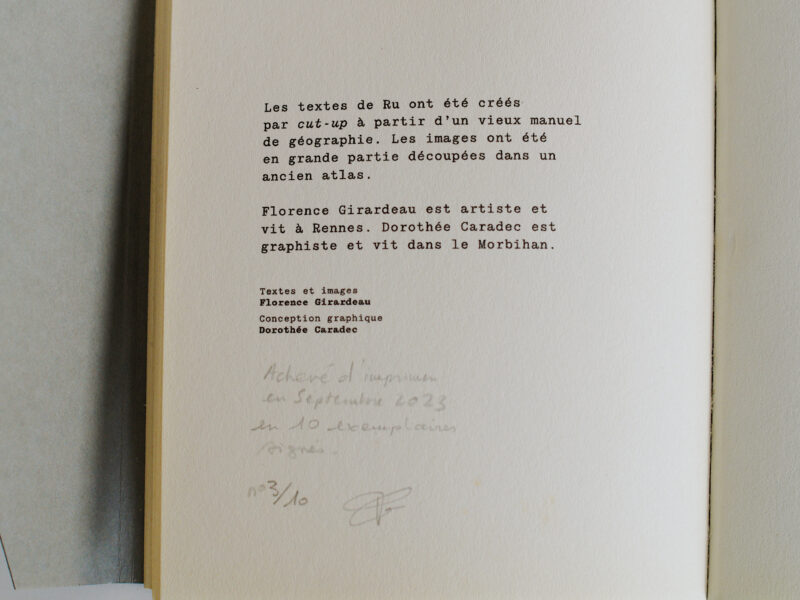 Les textes de Ru ont été créés
par cut-up à partir d'un vieux manuel
de géographie. Les images ont été
en grande partie découpées dans un
ancien atlas.
Florence Girardeau est artiste et
vit à Rennes. Dorothée Caradec est
graphiste et vit dans le Morbihan.
Textes et images
Florence Girardeau
Conception graphique
Dorothée Caradec
Achevé d'imprimer
en Septembre 2023
en 10 exemplaires
signés.
n°3/10